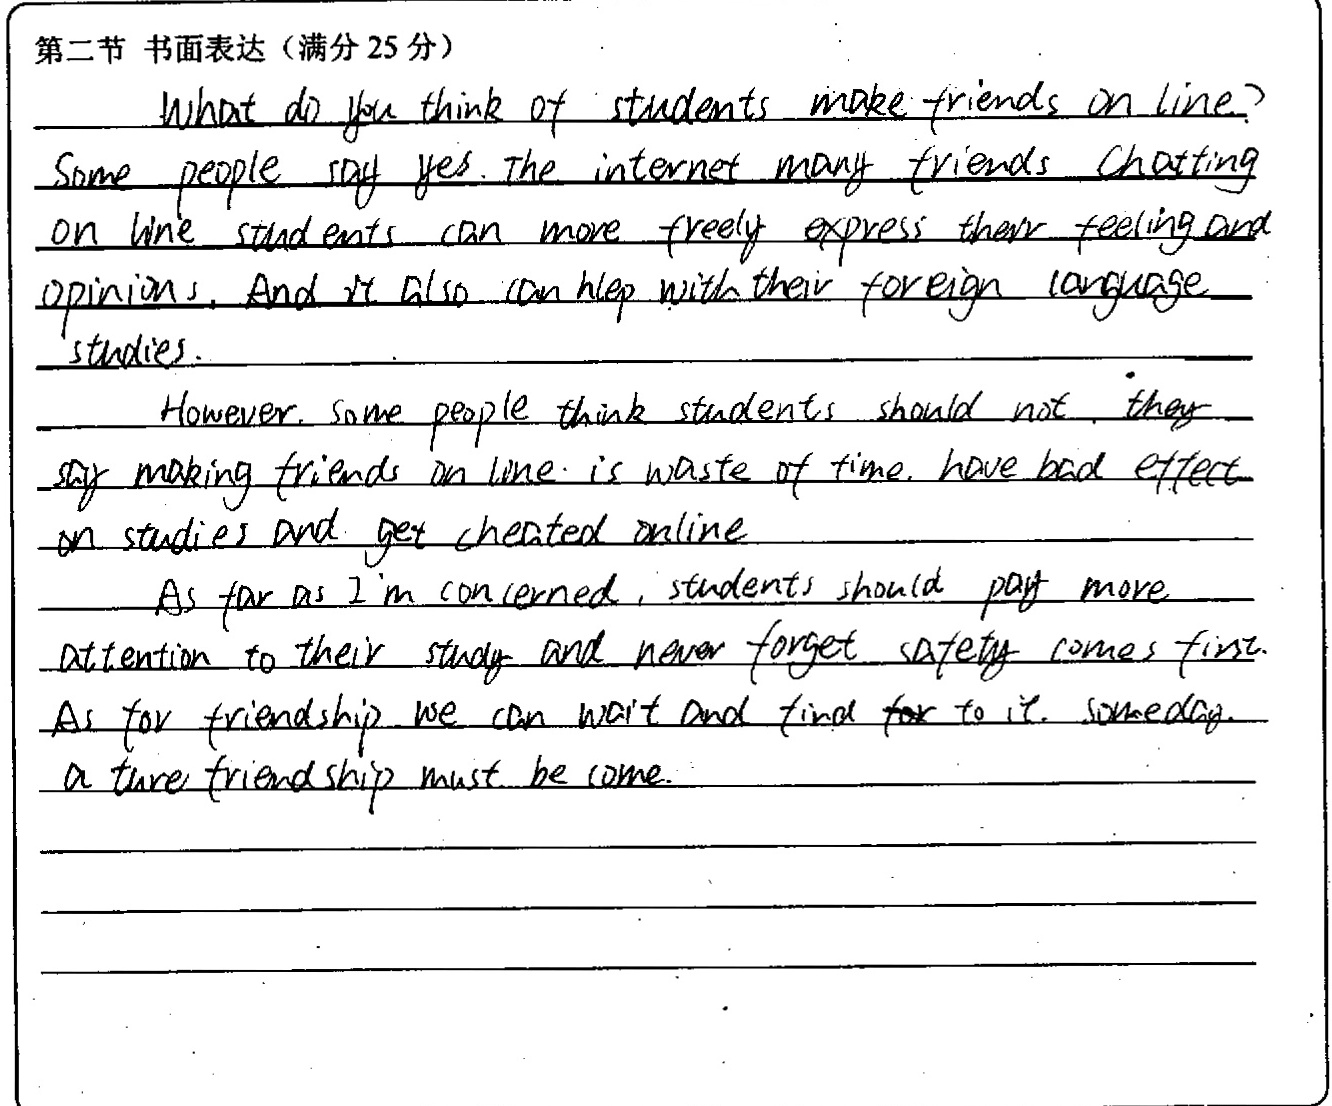 第二节 书面表达（满分 25 分）
What do you think of students make friends on line?
Some people say yes. The internet many friends Chatting
on line students can more freely express their feeling and
opinions. And it also can hlep with their foreign language
studies.
However. Some people think students should not. they
say making friends on line. is waste of time. have bad effect
on studies and get cheated online
As far as I'm concerned, students should pay more
attention to their study and never forget safety comes first.
As for friendship we can wait and find to it. someday.
a ture friendship must be come.